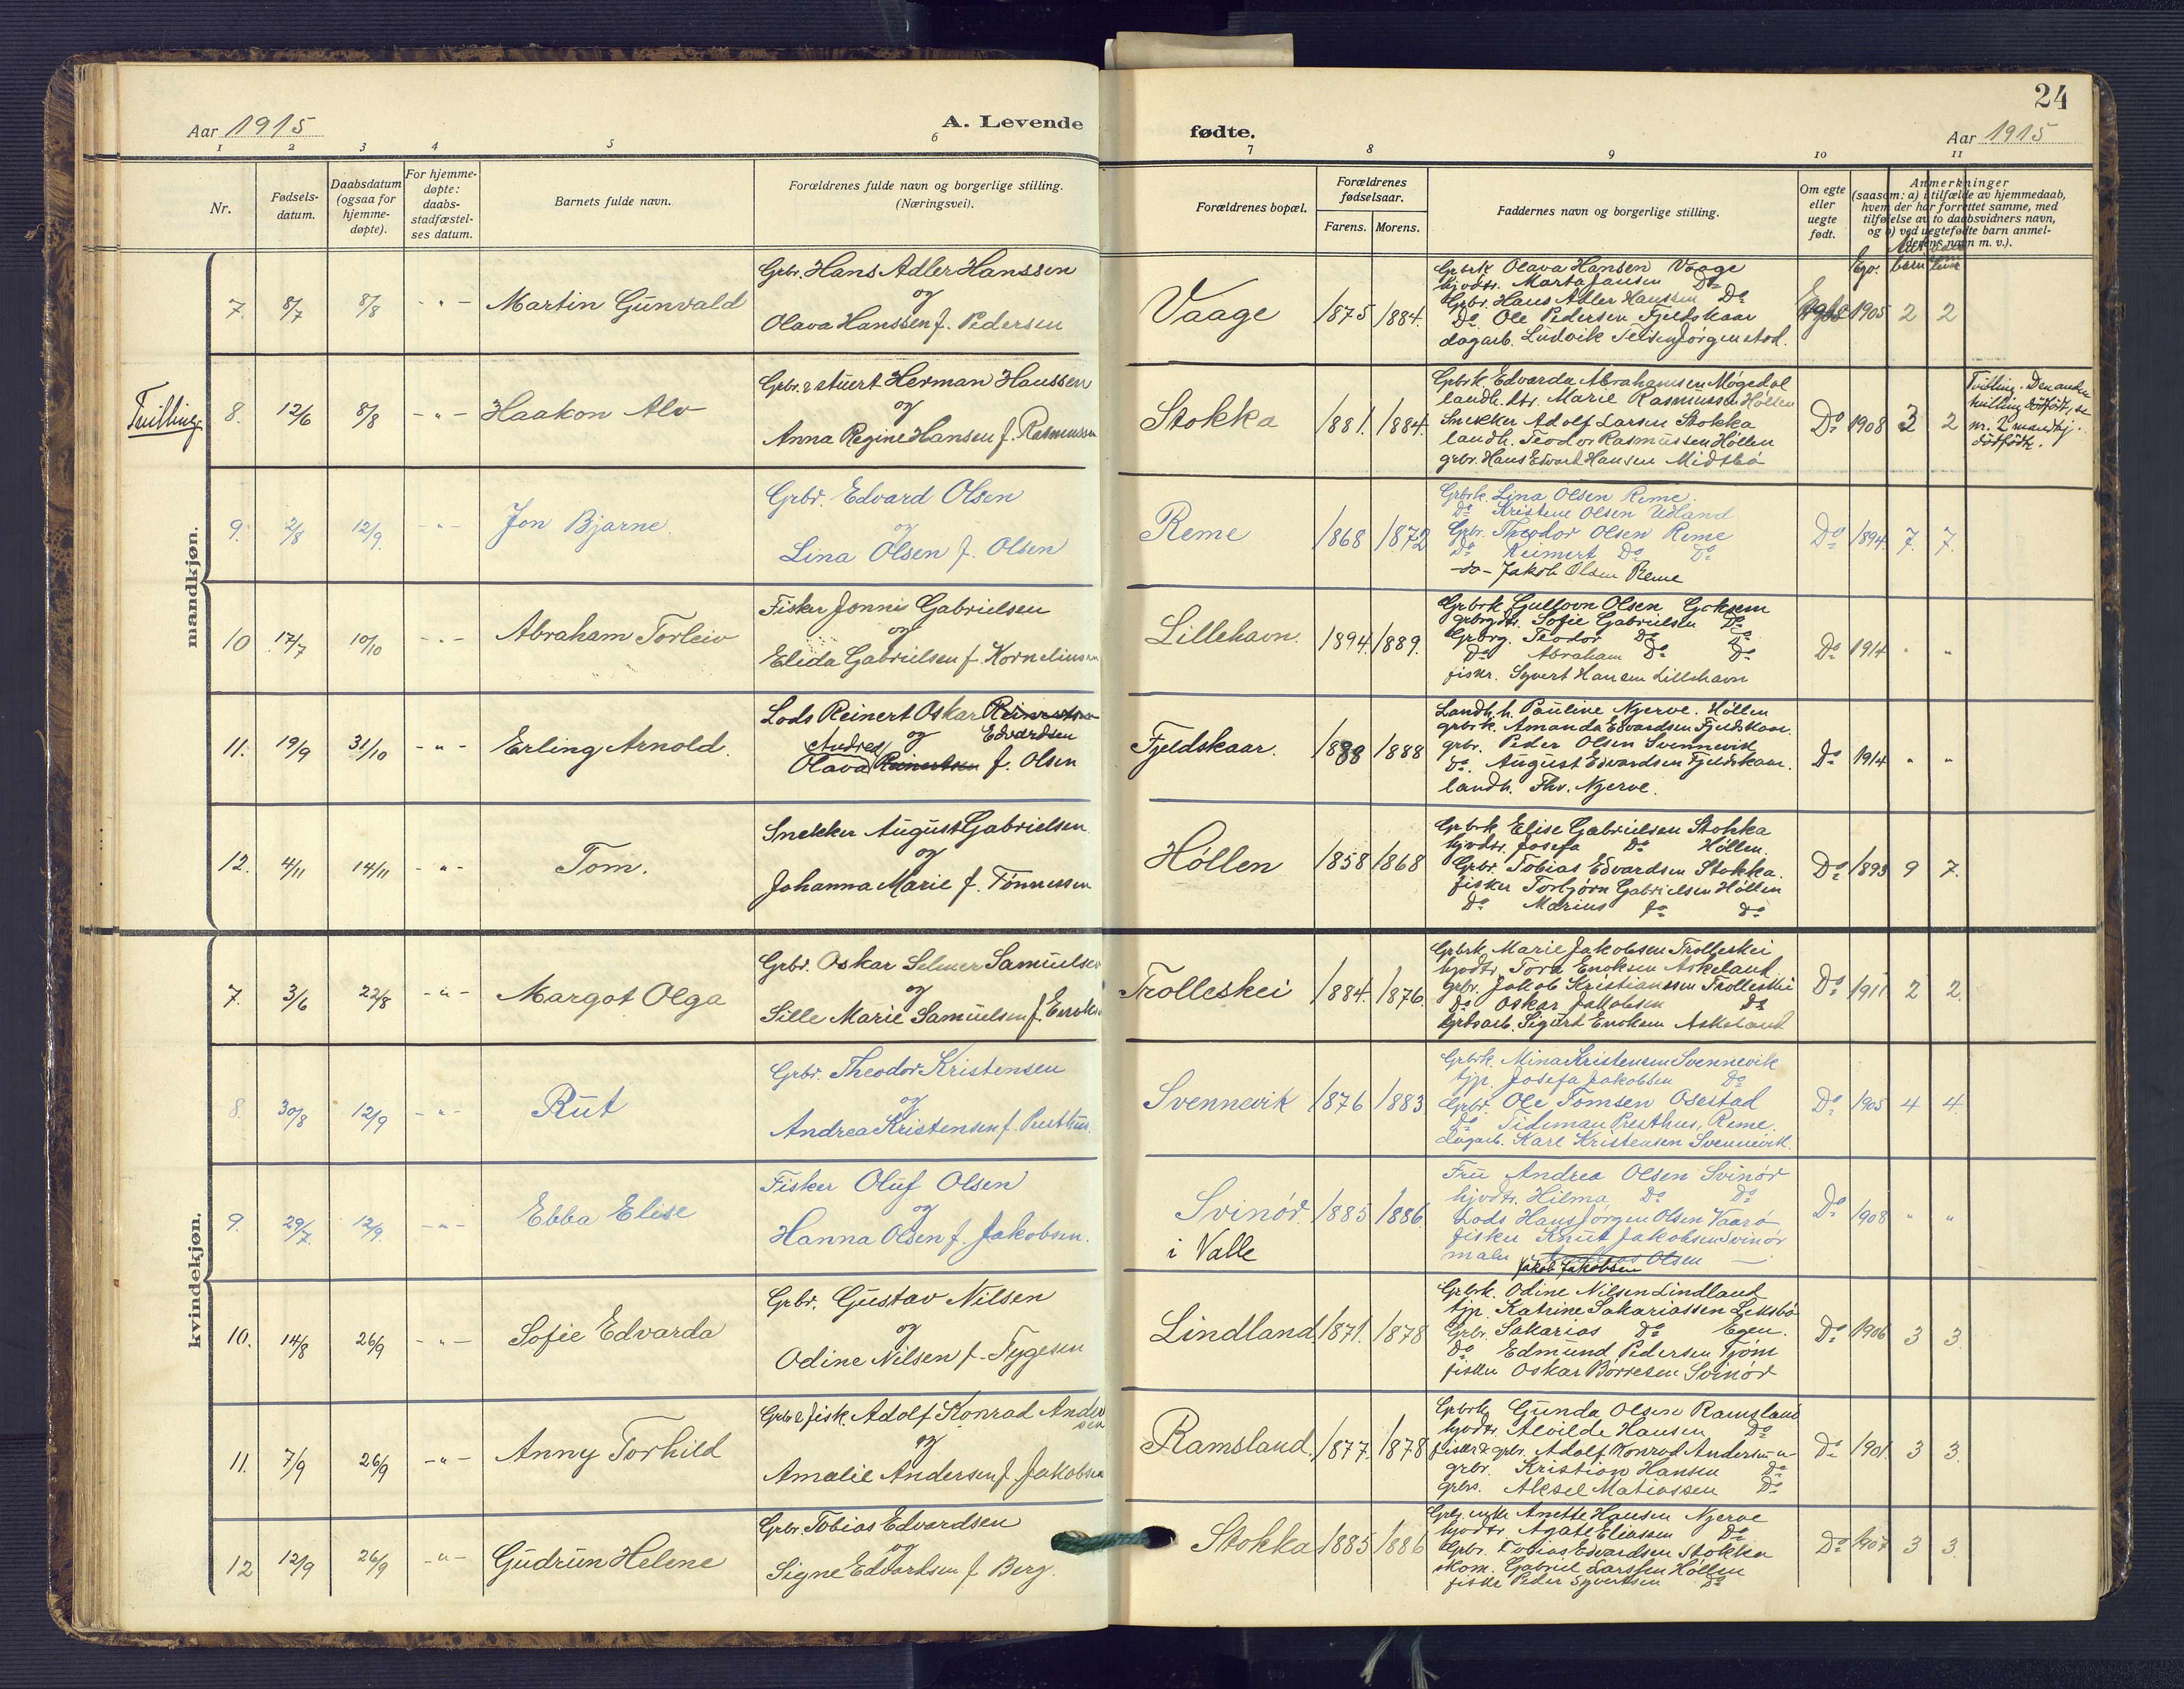 24
Aar 1915
A. Levende
fødte.
Aar 1915
1 2 3 4 5 6 7 8 9 10 11
Nr.
Fødsels-
datum.
Daabsdatum
(ogsaa for
hjemme-
døpte).
For hjemme-
døpte:
daabs-
stadfæstel-
ses datum.
Barnets fulde navn.
Forældrenes fulde navn og borgerlige stilling.
(Næringsvei).
Forældrenes bopæl.
Forældrenes
fødselsaar.
Farens. Morens.
Faddernes navn og borgerlige stilling.
Om egte
eller
uegte
født.
Anmerkninger
(saasom: a) i tilfælde av hjemmedaab,
hvem der har forrettet samme, med
tilføielse av to daabsvidners navn,
og b) ved uegtefødte barn anmel-
derens navn m. v.).
mandkjøn.
7. 8/7 8/8 - " - Martin Gunvald
Grbr. Hans Adler Hanssen
og
Olava Hanssen f. Pedersen
Vaage 1875 1884.
Grbrk Olava Hansen Vaage
hjvdtr. Marta Jansen Do
Grbr. Hans Adler Hanssen Do
Do Ole Pedersen Fjeldskaar
dagarb. Ludvik
1905 2 2
Tvilling
8. 12/6 8/8 - " - Haakon Alv
Grbr. & stuert Herman Hanssen
og
Anna Regine Hansen f. Rasmussen
Stokka 1881. 1884.
Grbrk. Edvarda Abrahamsen Møgedal
landh. dtr. Marie Rasmussen Høllen
Snekker Adolf Larsen Stokka
landh. Teodor Rasmussen Høllen
grbr. Hans Edvart Hansen Midtbø
Do 1908 3 2
Tvilling. Den anden
tvilling dødfødt, se
nr. 2 mandkj.
dødfødte.
9. 2/8 12/9. - " - Jon Bjarne
Grbr. Edvard Olsen
og
Lina Olsen f. Olsen
Reme 1868 1872
Grbrk. Lina Olsen Reme.
Do Kristine Olsen Udland
Grbr. Theodor Olsen Reme
Do Reimert Do Do
- do - Jakob Olsen Reme
Do 1894. 7. 7.
10 17/7 10/10 - " - Abraham Torleiv
Fisker Jonni Gabrielsen
og
Elida Gabrielsen f. Kornelius
Lillehavn. 1894. 1889.
Grbrk Gullovn Olsen Goksem
grbrgdtr. Sofie Gabrielsen Do
Grbrg. Teodor Do Do
Do Abraham Do Do
fiskr. Syvert Hansen Lillehavn
Do 1914 " "
11. 19/9 31/10 - " - Erling Arnold.
Lods Reinert Oskar Reinertsen
Andrea og Edvardsen
Olava Reinertsen f. Olsen
Fjeldskaar. 1888 1888
Landh. h. Pauline Njerve. Høllen
grbrk. Amanda Edvardsen Fjeldskaar.
grbr. Peder Olsen Svennevik
Do. August Edvardsen Fjeldskaar.
landh. Thv. Njerve.
Do 1914 " "
12. 4/11 14/11 - " - Tom.
Snekker August Gabrielsen
og
Johanna Marie f. Tønnessen
Høllen 1858 1868
Grbrk. Elise Gabrielsen Stokka
hjvdtr. Josefa Do Høllen.
Grbr. Tobias Edvardsen Stokka.
fisker Torbjørn Gabrielsen Høllen
Do Marius Do Do
Do 1893 9 7.
kvindekjøn.
7. 3/6 22/8 - " - Margot Olga
Grbr. Oskar Selmer Samuelsen
og
Sille Marie Samuelsen f. Enoks
Trolleskei 1884. 1876.
Grbrk Marie Jakobsen Trolleskei
hjvdtr. Tora Enoksen Askeland
grbr. Jakob Kristianssen Trolleskei
Do Oskar Jakobsen Do
Grbsarb. Sigurd Enoksen Askeland
Do 1911 2 2.
8. 30/8 12/9 - " - Rut
Grbr. Theodor Kristensen
og
Andrea Kristensen f. Presthus.
Svennevik 1876 1883
Grbrk. Mina Kristensen Svennevik
tjp. Josefa Jakobsen Do
Grbr. Ole Tomsen Osestad
Do Tideman Presthus, Reme.
Dagarb. Karl Kristensen Svennevik
Do 1905 4 4.
9. 29/7. 12/9. - " - Ebba Elise
Fisker Oluf Olsen
og
Hanna Olsen f. Jakobsen.
Svinør. 1885 1886.
i Valle
Fru Andrea Olsen Svinør
hjvdtr. Hilma Do Do
Lods Hans Jørgen Olsen Vaarø
fisker Knut Jakobsen Svinør
maler Andreas Olsen —
Jakob Jakobsen
Do 1908 " "
10. 14/8 26/9 - " - Sofie Edvarda
Grbr. Gustav Nilsen
og
Odine Nilsen f. Tygesen
Lindland 1871. 1878
Grbrk. Odine Nilsen Lindland
tjp. Katrine Sakariassen Leksbø
Grbr. Sakarias Do Egen.
Do Edmund Pedersen Tjom
fisker Oskar Børresen Svinør
Do 1906 3 3.
11. 7/9 26/9 - " - Anny Torhild
Grbr & fisk. Adolf Konrad Ander
sen
og
Amalie Andersen f. Jakobsen
Ramsland. 1877. 1878
Grbrk Gunda Olsen Ramsland
hjvdtr. Alvilde Hansen Do
fisker & grbr. Adolf Konrad Andersen
grbr. Kristian Hansen Do
grbrs. Aksel Matiassen Do
Do 1901. 3 3.
12 12/9 26/9 - " - Gudrun Helene
Grbr. Tobias Edvardsen
og
Signe Edvardsen f. Berg.
Stokka 1885 1886
Anette Hansen Njerve
hjvdtr. Agate Eliassen Do
Grbr. Tobias Edvardsen Stokka
skom. Gabriel Larssen Høllen
fisker Peder Syvertsen Do
Do 1907 3 3.